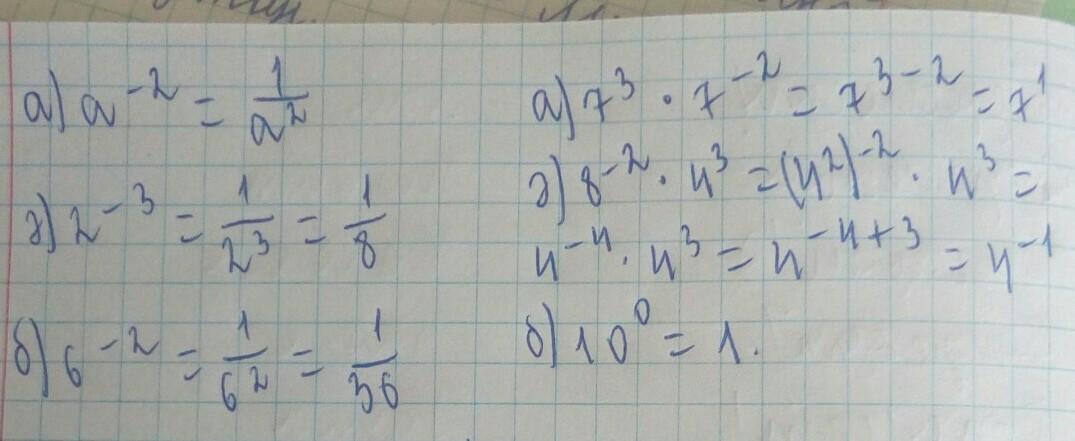 а) a^-2 = 1/a^2
г) 2^-3 = 1/2^3 = 1/8
б) 6^-2 = 1/6^2 = 1/36
а) 7^3 · 7^-2 = 7^3-2 = 7^1
г) 8^-2 · 4^3 = (4^2)^-2 · 4^3 =
4^-4 · 4^3 = 4^-4+3 = 4^-1
б) 10^0 = 1.